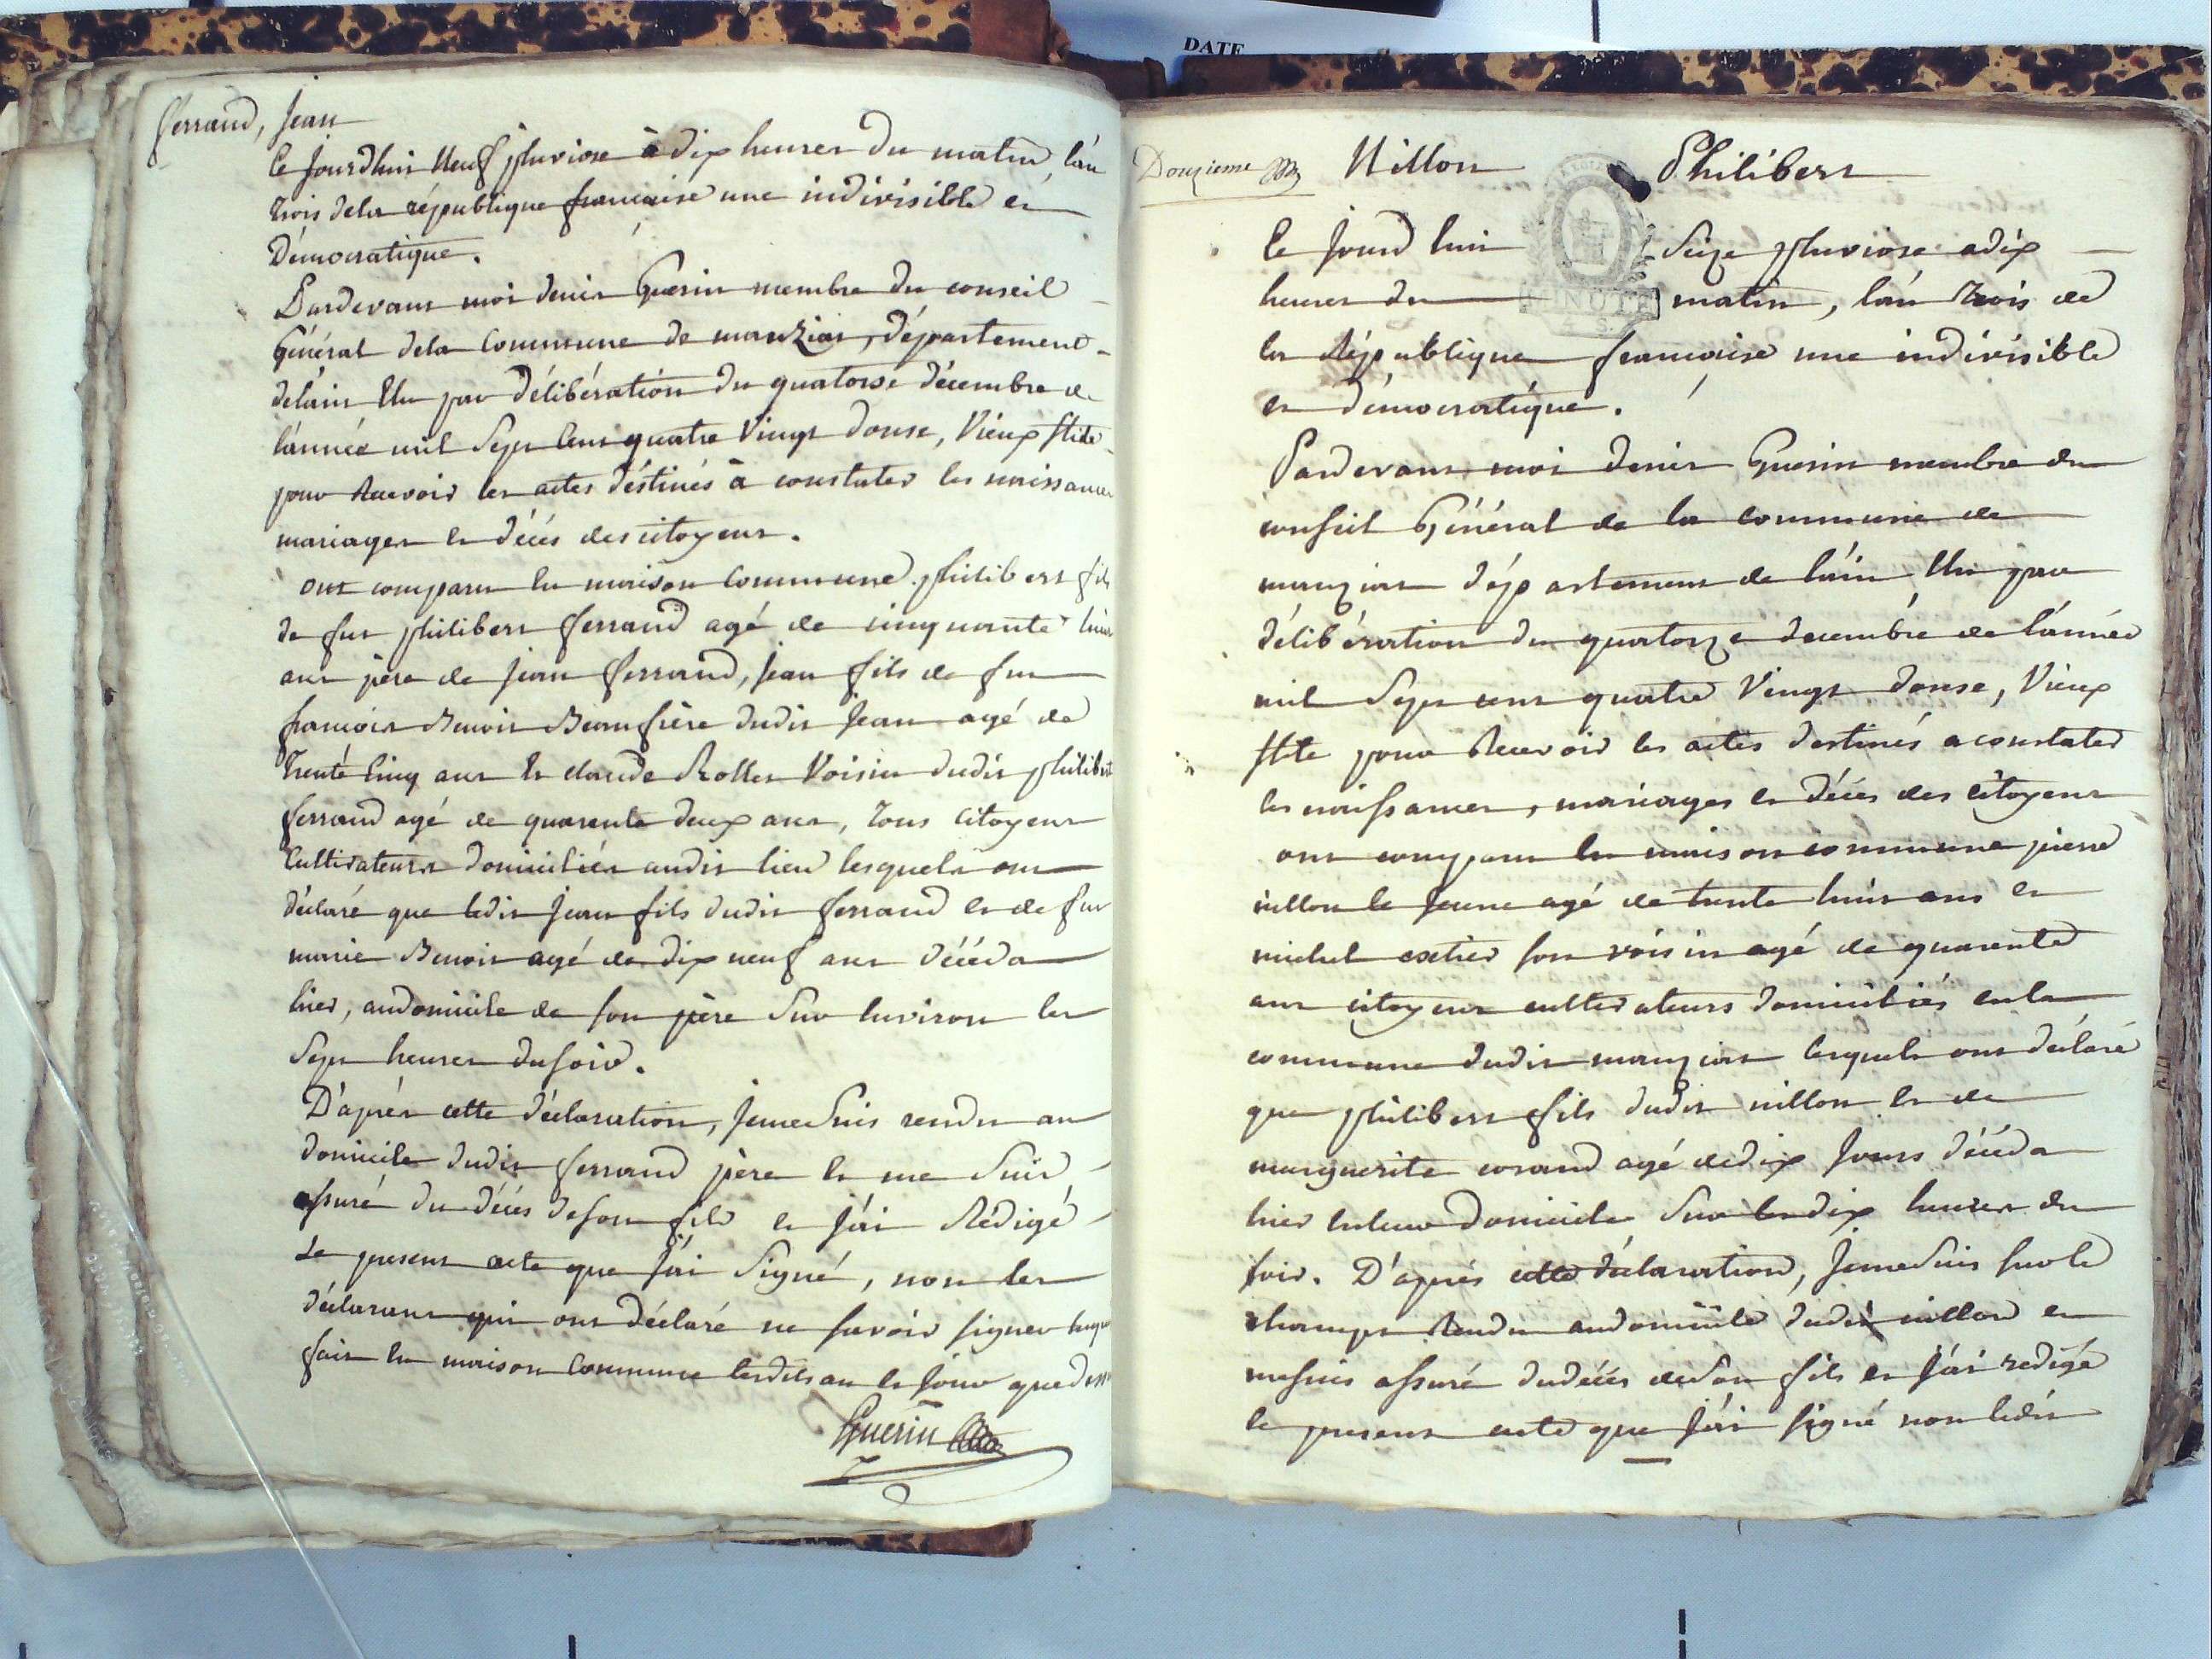 DATE
ferrand, Jean
Ce Jourdhui Neuf pluviose à dix heures du matin, lán
trois dela république francaise une indivisible et
Démocratique.
Pardevant moi denis Guerin membre du conseil
Général dela Commune de manziat, département
deláin Elu par délibération du quatorse décembre de
lánnée mil Sept Cent quatre Vingt douse, Vieux stile
pour Recevoir les actes déstinés à constater les naissances
mariages et décés des citoyens.
ont comparu En maison Commune philibert fils
de fut philibert ferrand agé de cinquante huit
ans père de jean ferrand, jean fils de fut
francois Benoit Beaufrère dudit Jean agé de
trente Cinq ans Et claude Rollet Voisin dudit philibert
ferrand agé de quarente deux ans, tous Citoyens
Cultivateurs domiciliés audit lieu lesquels ont
déclaré que ledit Jean fils dudit ferrand et de fut
marie Benoit agé de dix neuf ans décéda
hier, audomicile de son père Sur Environ les
Sept heures dusoir.
D'après cette déclaration, Jeme Suis rendu au
domicile dudit ferrand père Et me Suis
assuré du décés deson fils et Jái Rédigé
Le present acte que Jái Signé, non les
déclarans qui ont déclaré ne savoir signer
fait En maison Commune lesdits an et Jour que dessus
Guerin
Douzieme Nillon Philibert
Ce Jourd hui Seize pluviose adix
heures du matin, lán trois de
MINUTE
la République francaise une indivisible
et démocratique.
Pardevant moi denis Guerin membre du
conseil Général de la commune de
manziat département de láin Elu par
délibération du quatorze decembre de lánnée
mil Sept cent quatre Vingt douse, Vieux
stile pour Recevoir les actes destinés a constater
les naissances, mariages et décés des Citoyens
ont comparu En maison commune pierre
nillon le Jeune agé de trente huit ans et
michel son voisin agé de quarente
ans citoyens cultivateurs domiciliés enla
commune dudit manziat lesquels ont déclaré
que philibert fils dudit nillon Et de
marguerite corand agé dedix Jours décéda
hier Enleur domicile Sur lesdix heures du
soir. D'après cette déclaration, Jemesuis surle
champs Rendu audomicile dudit nillon et
mesuis assuré dudécés deson fils et Jái redigé
le present acte que Jái signé non ledit